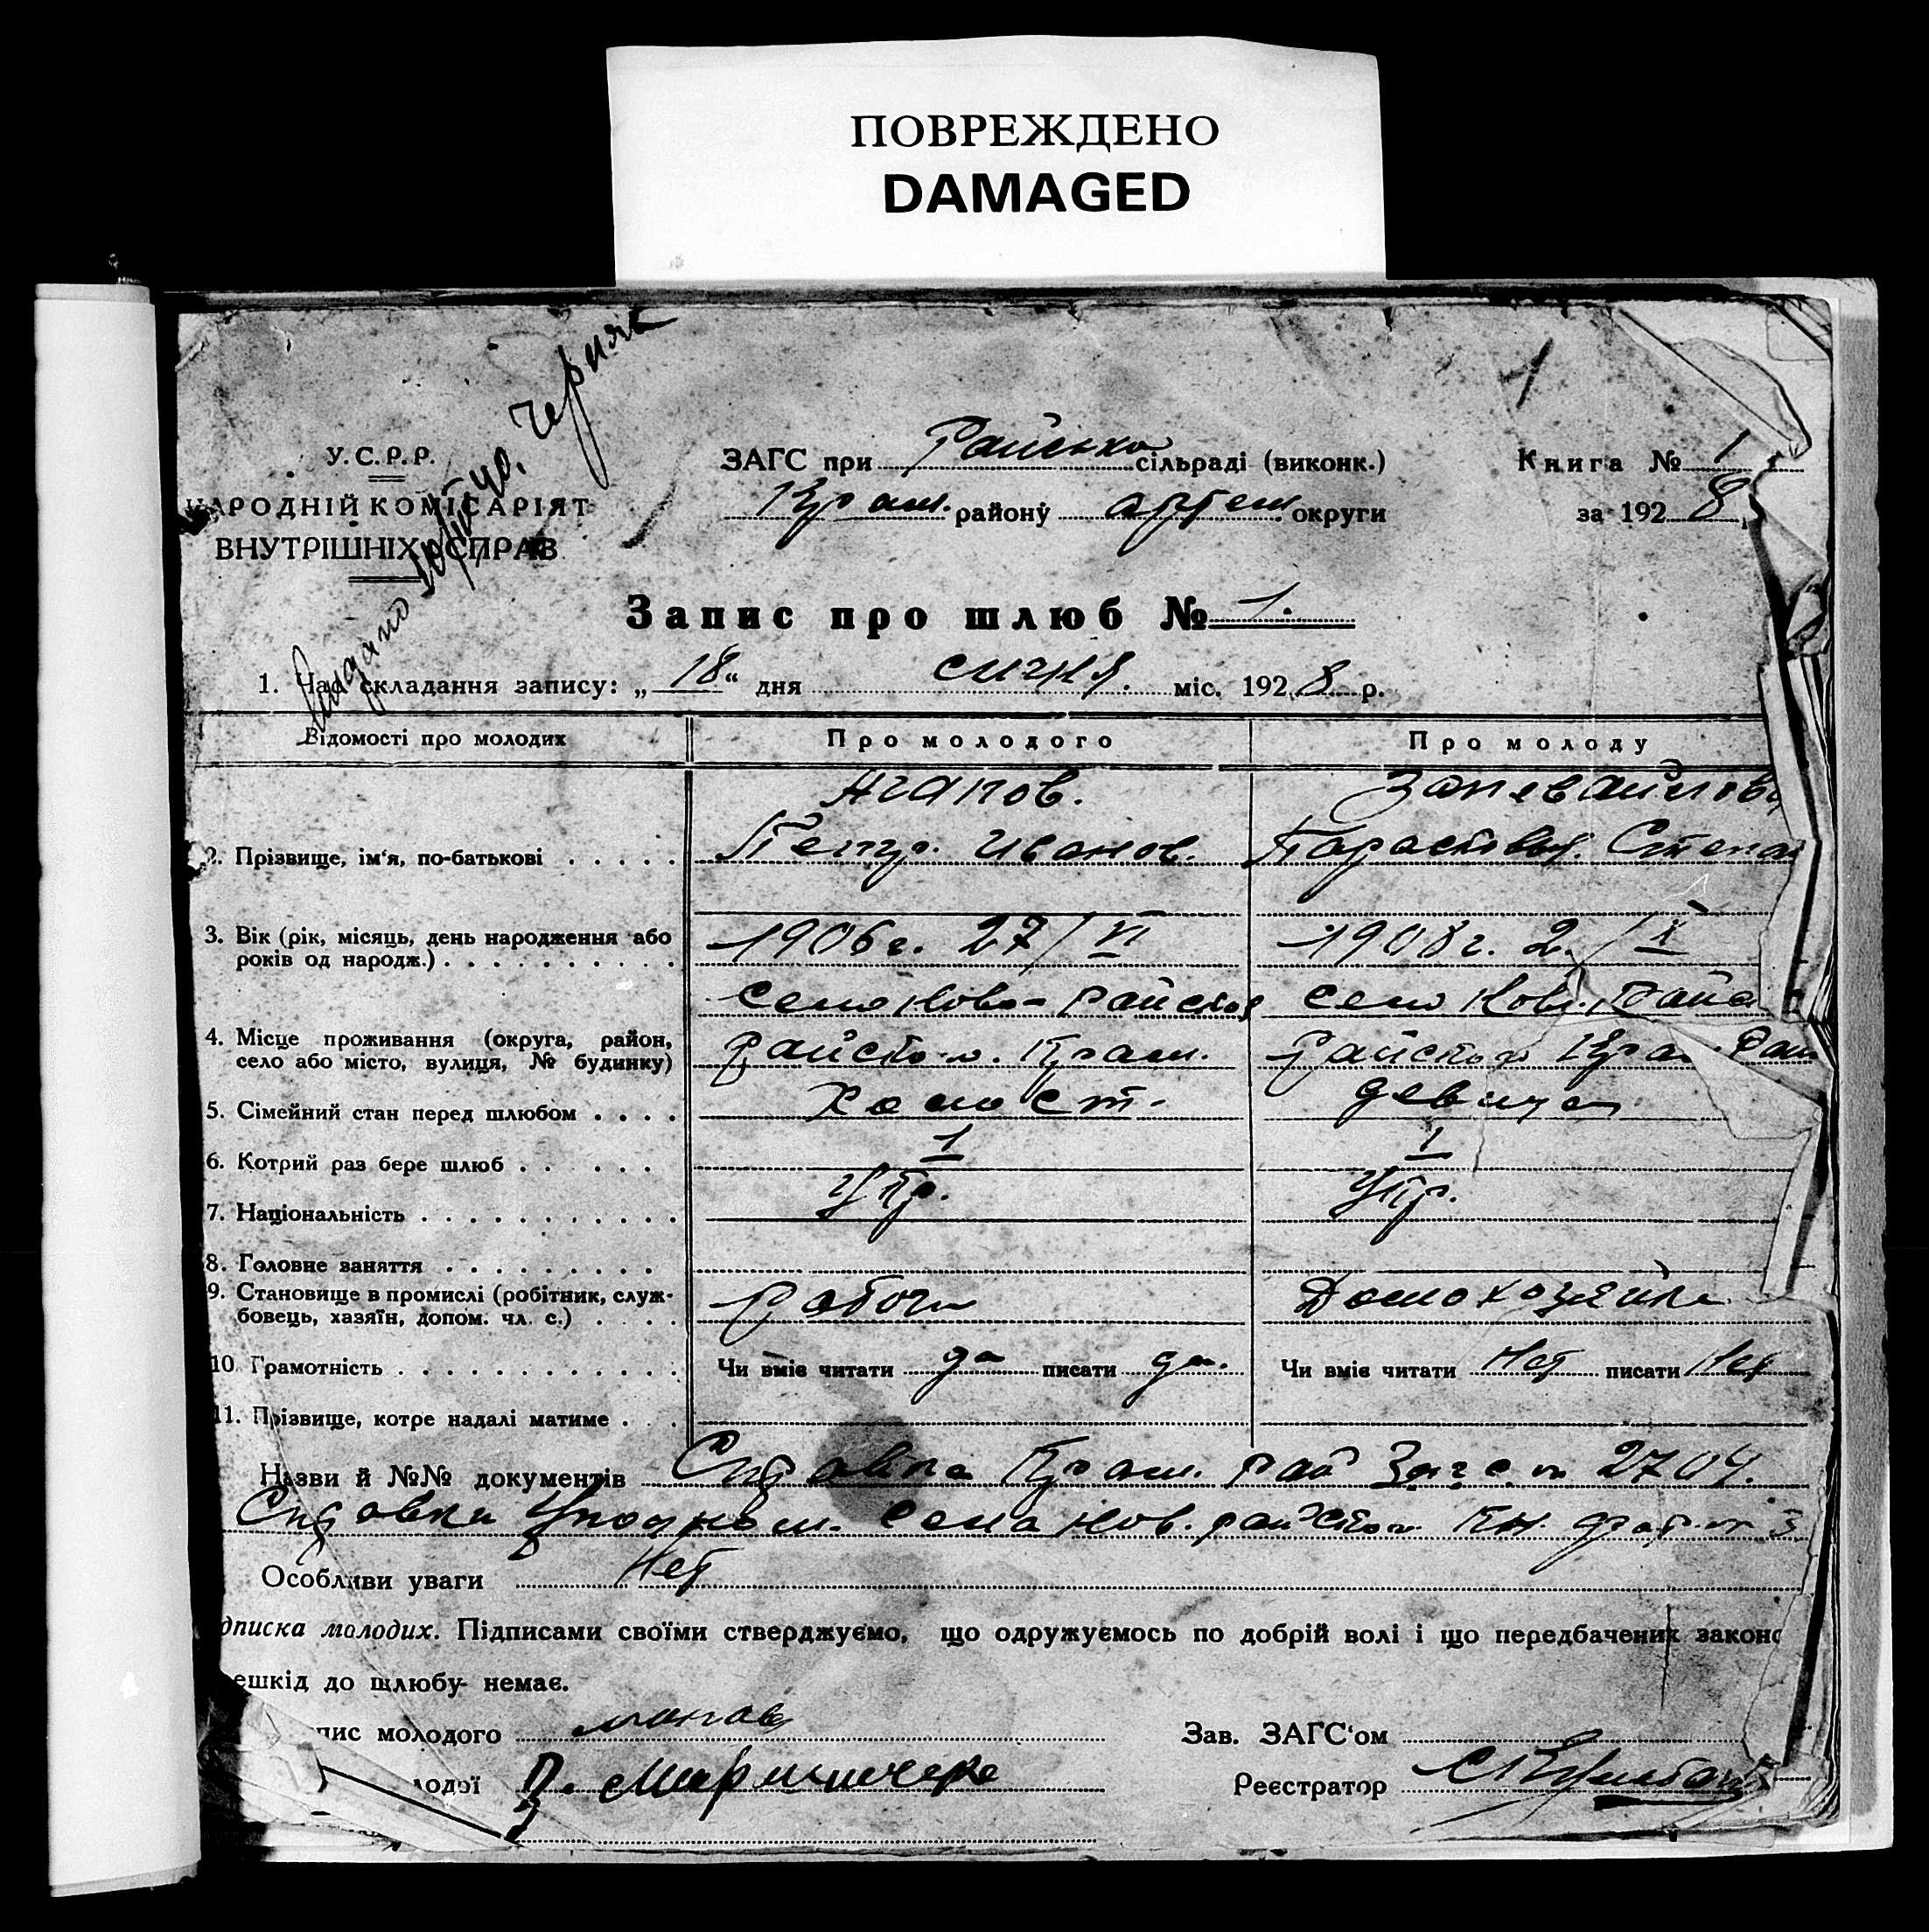 ПОВРЕЖДЕНО
DAMAGED
1
У.С.Р.Р.
НАРОДНІЙ КОМІСАРІЯТ
ВНУТРІШНІХ СПРАВ
ЗАГС при Райсько сільраді (виконк.)
Крам. району артем. округи
Книга № 1
за 1928
Запис про шлюб № 1.
1. Час складання запису: „18“ дня сичня. міс. 1928 р.
Відомості про молодих
Про молодого
Про молоду
2. Прізвище, ім'я, по-батькові
Агапов.
Петр. Иванов.
Парасковья. Степа
3. Вік (рік, місяць, день народження або
років од народж.)
1906 г. 27/VI
1908 г. 2./X
4. Місце проживання (округа, район,
село або місто, вулиця, № будинку)
село Ново-Райское
Райсько. Крам.
село Нов. Райс
Райсько Кра Рай
5. Сімейний стан перед шлюбом
Холост.
девица
6. Котрий раз бере шлюб
1
1
7. Національність
Укр.
Укр.
8. Головне заняття
9. Становище в промислі (робітник, служ-
бовець, хазяїн, допом. чл. с.)
Рабоч
Домохозяйка
10. Грамотність
Чи вміє читати да писати да.
Чи вміє читати Нет писати Нет
11. Прізвище, котре надалі матиме
Назви й №№ документів Справка Крам. рай Загса 2704.
Справка села Нов. райско
Особливи уваги Нет
дписка молодих. Підписами своїми стверджуємо, що одружуємось по добрій волі і що передбачених законо
ешкід до шлюбу немає.
пис молодого
лодої
Зав. ЗАГС'ом
Реєстратор